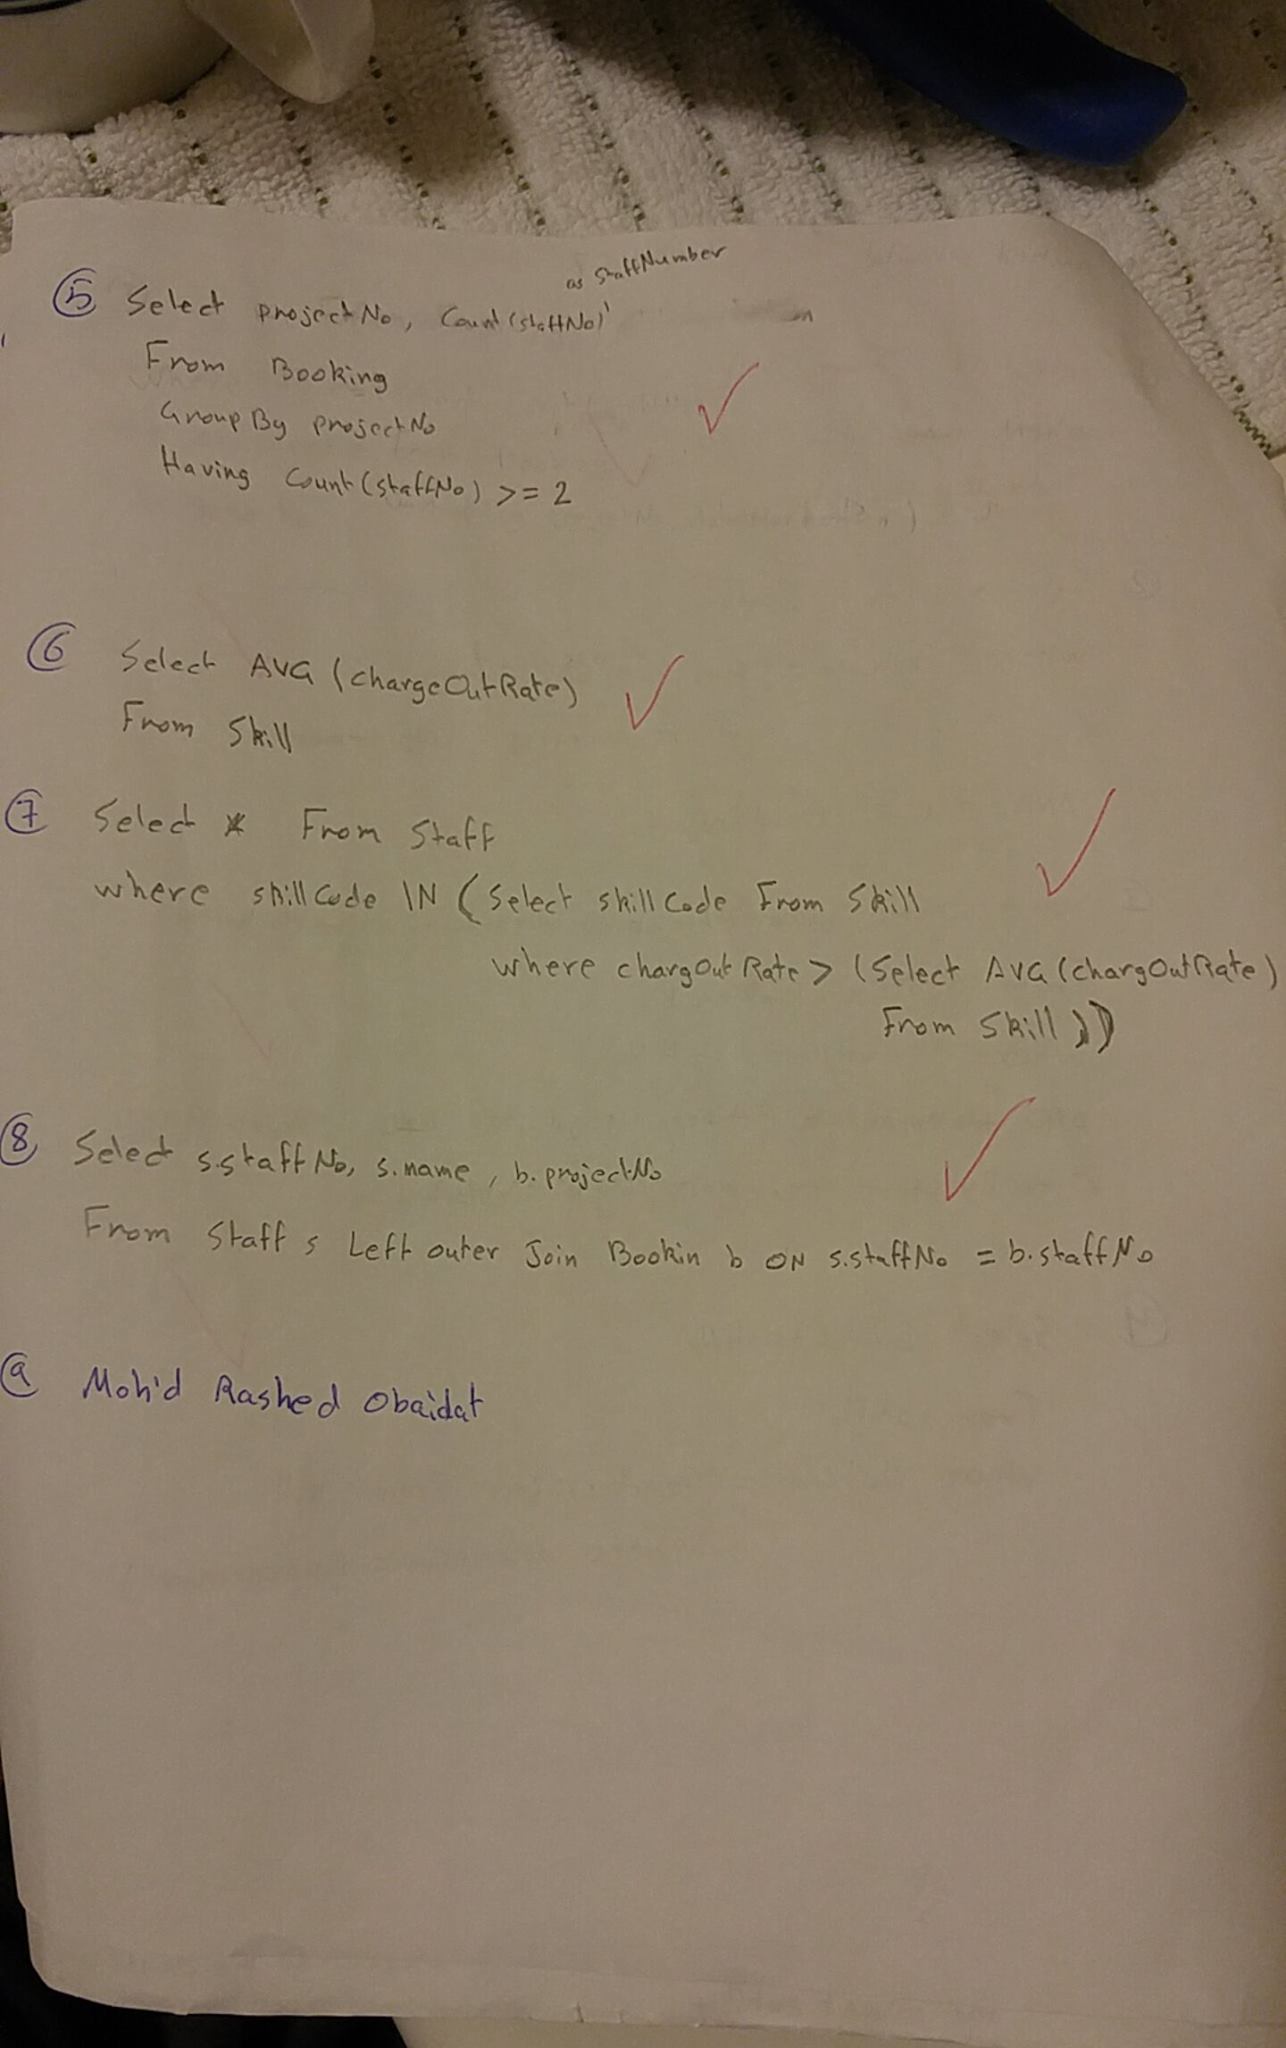 5 Select projectNo, Count(staffNo) as staffNumber
From Booking
Group By projectNo
Having Count(staffNo) >= 2
6 Select AVG (chargeOutRate)
From Skill
7 Select * From Staff
where skillCode IN (Select skillCode From Skill
where chargOutRate > (Select AVG (chargOutRate)
From Skill))
8 Select s.staffNo, s.name, b.projectNo
From Staff s Left outer Join Bookin b ON s.staffNo = b.staffNo
9 Moh'd Rashed Obaidat